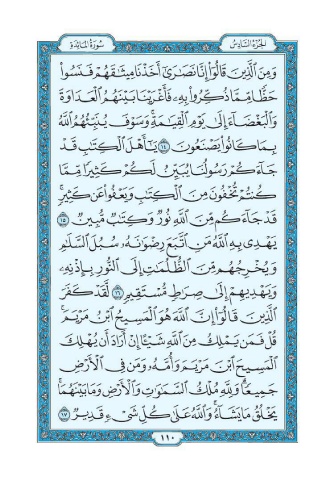 الجزء السادس سورة المائدة
وَمِنَ ٱلَّذِينَ قَالُوٓا۟ إِنَّا نَصَـٰرَىٰٓ أَخَذْنَا مِيثَـٰقَهُمْ فَنَسُوا۟
حَظًّا مِّمَّا ذُكِّرُوا۟ بِهِۦ فَأَغْرَيْنَا بَيْنَهُمُ ٱلْعَدَاوَةَ
وَٱلْبَغْضَآءَ إِلَىٰ يَوْمِ ٱلْقِيَـٰمَةِ وَسَوْفَ يُنَبِّئُهُمُ ٱللَّهُ
بِمَا كَانُوا۟ يَصْنَعُونَ ١٤ يَـٰٓأَهْلَ ٱلْكِتَـٰبِ قَدْ
جَآءَكُمْ رَسُولُنَا يُبَيِّنُ لَكُمْ كَثِيرًا مِّمَّا
كُنتُمْ تُخْفُونَ مِنَ ٱلْكِتَـٰبِ وَيَعْفُوا۟ عَن كَثِيرٍ ۚ
قَدْ جَآءَكُم مِّنَ ٱللَّهِ نُورٌ وَكِتَـٰبٌ مُّبِينٌ ١٥
يَهْدِى بِهِ ٱللَّهُ مَنِ ٱتَّبَعَ رِضْوَٰنَهُۥ سُبُلَ ٱلسَّلَـٰمِ
وَيُخْرِجُهُم مِّنَ ٱلظُّلُمَـٰتِ إِلَى ٱلنُّورِ بِإِذْنِهِۦ
وَيَهْدِيهِمْ إِلَىٰ صِرَٰطٍ مُّسْتَقِيمٍ ١٦ لَّقَدْ كَفَرَ
ٱلَّذِينَ قَالُوٓا۟ إِنَّ ٱللَّهَ هُوَ ٱلْمَسِيحُ ٱبْنُ مَرْيَمَ ۚ
قُلْ فَمَن يَمْلِكُ مِنَ ٱللَّهِ شَيْـًٔا إِنْ أَرَادَ أَن يُهْلِكَ
ٱلْمَسِيحَ ٱبْنَ مَرْيَمَ وَأُمَّهُۥ وَمَن فِى ٱلْأَرْضِ
جَمِيعًا ۗ وَلِلَّهِ مُلْكُ ٱلسَّمَـٰوَٰتِ وَٱلْأَرْضِ وَمَا بَيْنَهُمَا ۚ
يَخْلُقُ مَا يَشَآءُ ۚ وَٱللَّهُ عَلَىٰ كُلِّ شَىْءٍ قَدِيرٌ ١٧
١١٠